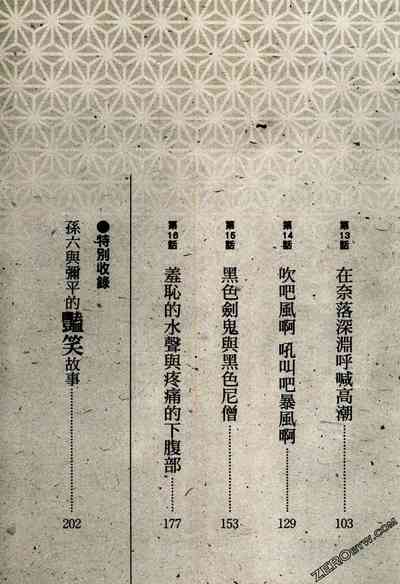 第13話 在奈落深淵呼喊高潮 103
第14話 吹吧風啊 吼叫吧暴風啊 129
第15話 黑色劍鬼與黑色尼僧 153
第16話 羞恥的水聲與疼痛的下腹部 177
●特別收錄
孫六與彌平的豔笑故事 202
ZEROBYW.COM